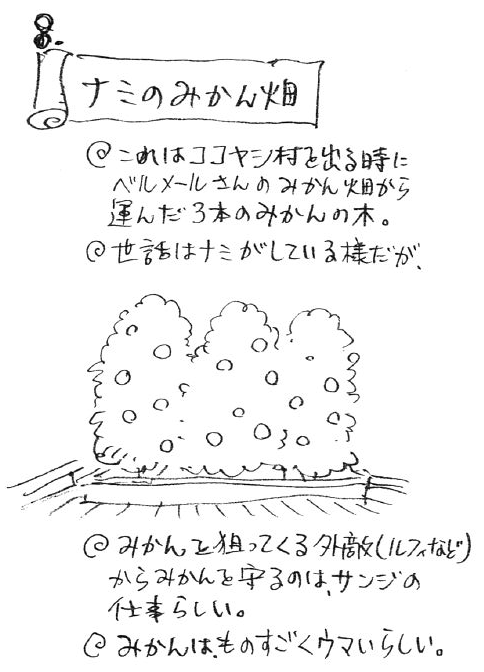 8.
ナミのみかん畑
@ これはココヤシ村を出る時に
ベルメールさんのみかん畑から
運んだ3本のみかんの木。
@ 世話はナミがしている様だが、
@ みかんを狙ってくる外敵(ルフィなど)
からみかんを守るのは、サンジの
仕事らしい。
@ みかんは、ものすごくウマいらしい。